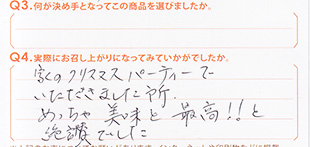 Q3.何が決め手となってこの商品を選びましたか。
Q4.実際にお召し上がりになってみていかがでしたか。
家のクリスマスパーティーで
いただきました所、
めっちゃ美味と最高!!と
絶讃でした